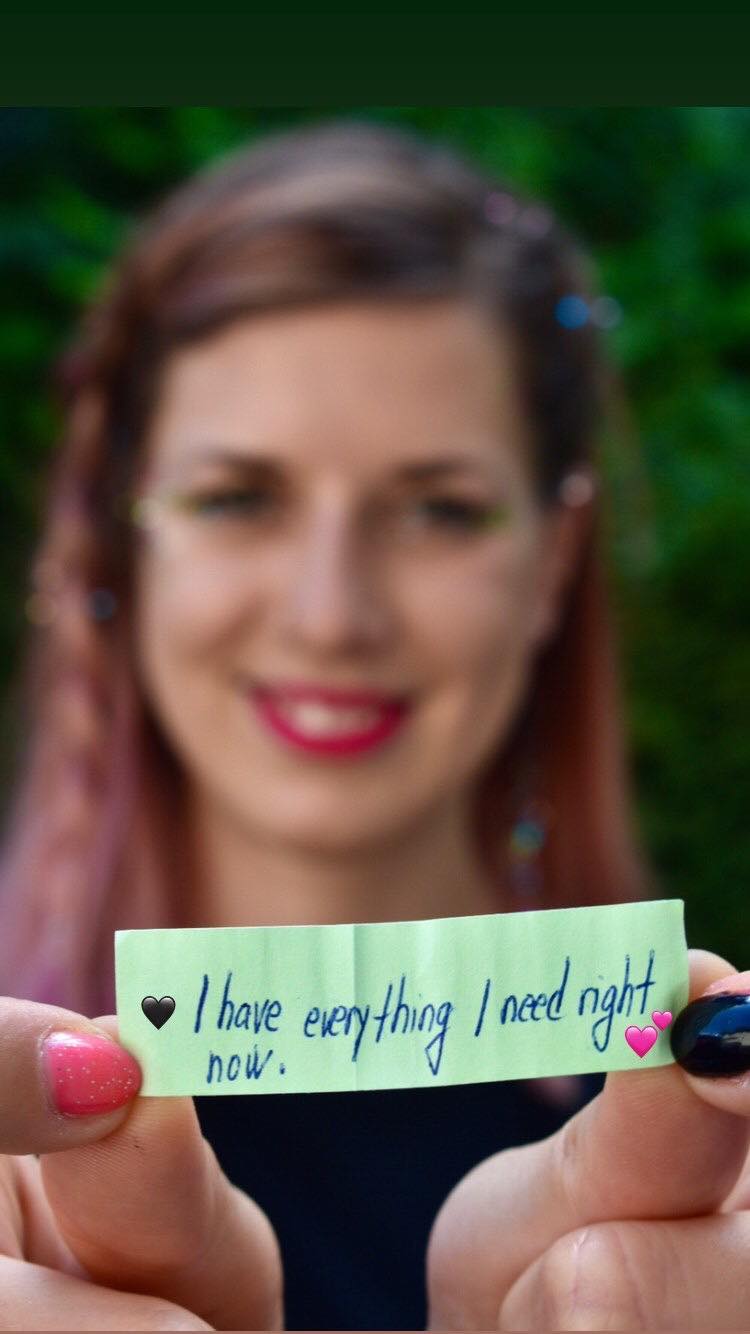 🖤 I have everything I need right
now. 💕